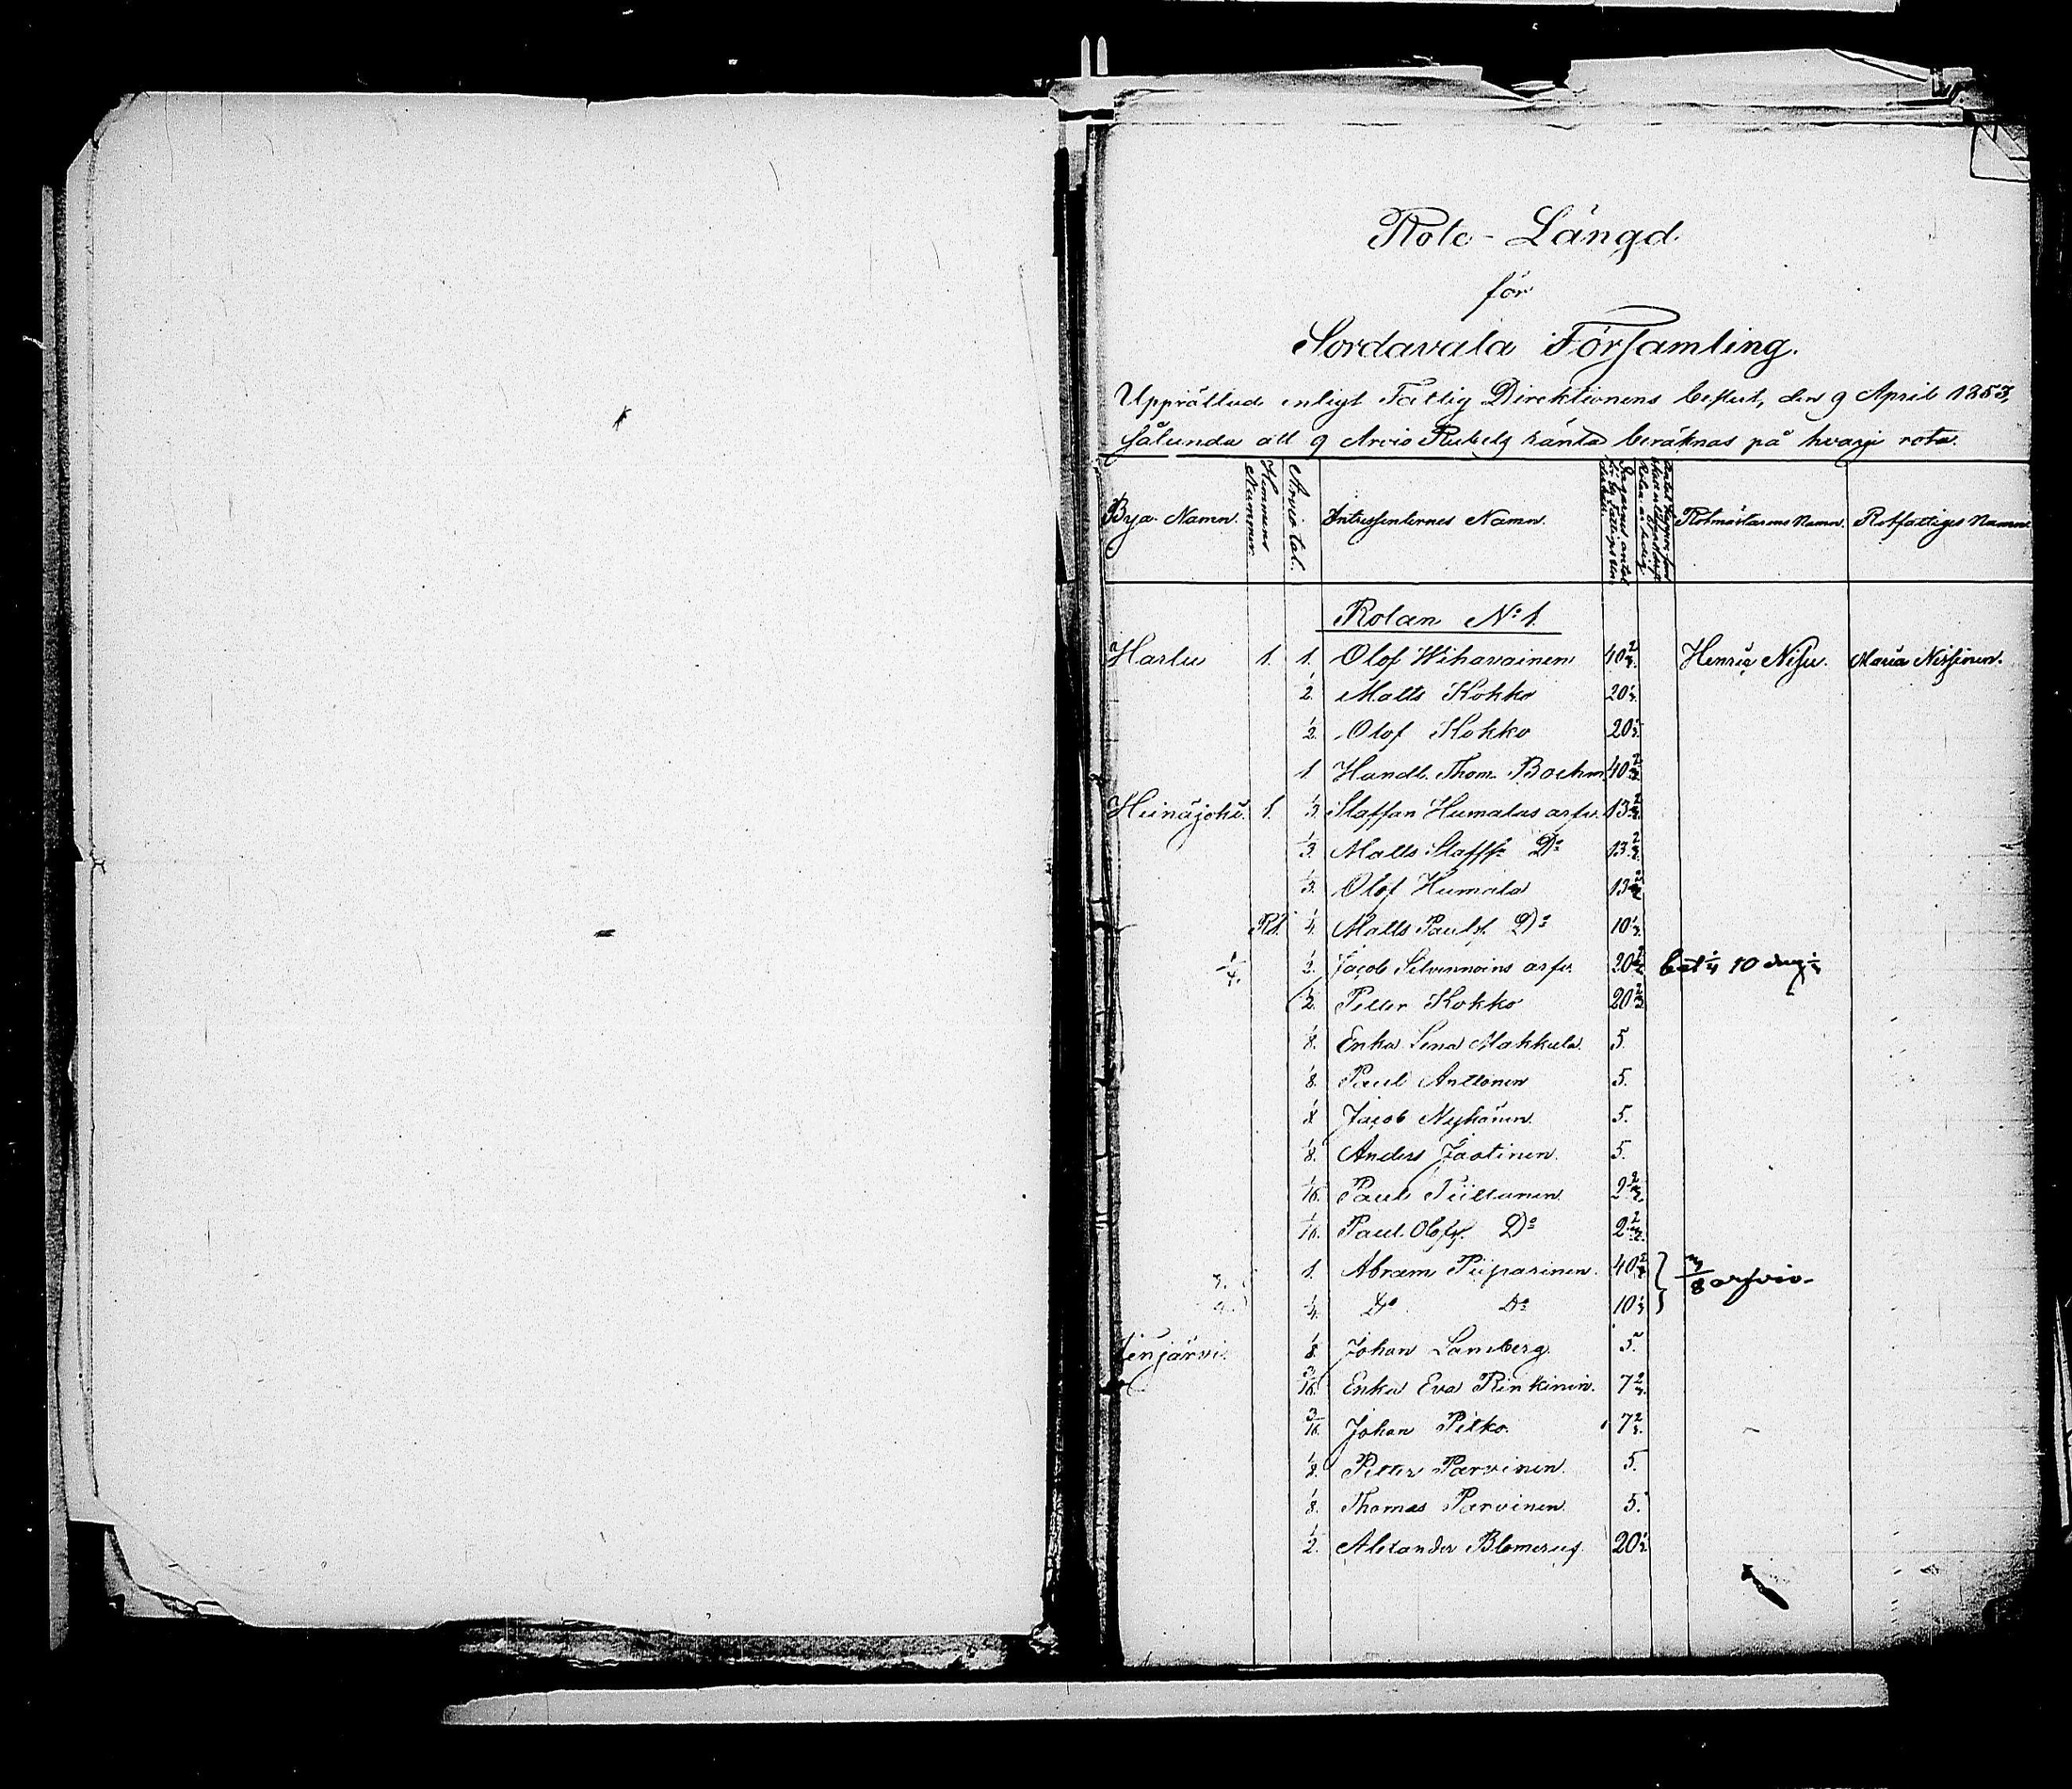 Rote-Längd
för
Sordavala Församling.
Upprättad enligt Fattig Direktionens beslut, den 9 April 1853,
sålunda att 9 Arvio Rubels ränta beräknas på hvarje rota.
Bya-Namn. Hemmans Nummer. Arvio tal. Intressenternes Namn. Rotmästarens Namn. Rotfattiges Namn.
Rotan No 1.
Harlu 1. 1. Olof Wihavainen 40 2/3. Henric Nissu. Maria Nissinen.
1/2. Matts Kokko 20 1/3.
1/2. Olof Kokko 20 1/3.
1 Handl. Thom. Boehm 40 2/3.
Heinäjoki. 1. 1/3. Staffan Humalas arfv. 13 2/3.
1/3. Matts Staffs. Do 13 2/3.
1/3. Olof Humala 13 2/3.
Rd. 1/4. Matts Paulss. Do 10 1/3.
1/4. 1/2. Jacob Silvennoins arfv. 20 bet 1/4 10 dag 1/3
1/2. Petter Kokko 20 2/3.
1/8. Enka Lena Makkula. 5.
1/8. Paul Anttonen 5.
1/8 Jacob Nykänen. 5.
1/8. Anders Jaatinen. 5.
1/16. Paul Piiltunen 2 2/3.
1/16. Paul Olofs. Do 2 2/3.
1. Abram Piiparinen. 40 2/3 } 7/8 arfvio
1/4. Do Do 10 1/3
enjärvi. 1/8. Johan Lamberg. 5.
3/16. Enka Eva Rinkinen. 7 2/3.
3/16. Johan Pitko. 7 2/3.
1/8. Petter Parvinen. 5.
1/8. Thomas Parvinen. 5.
1/2. Alexander Blomerus. 20 1/3.